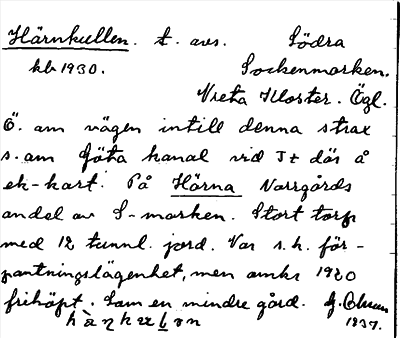 Härnkullen. t. avs. Södra
kb 1930. Sockenmarken.
Vreta Kloster. Ögl.
Ö. om vägen intill denna strax
s. om Göta kanal vid T t där å
ek-kart. På Härna Norrgårds
andel av S-marken. Stort torp
med 12 tunnl. jord. Var s.k. för-
pantningslägenhet, men omkr 1920
friköpt. Som en mindre gård. G.
1937.